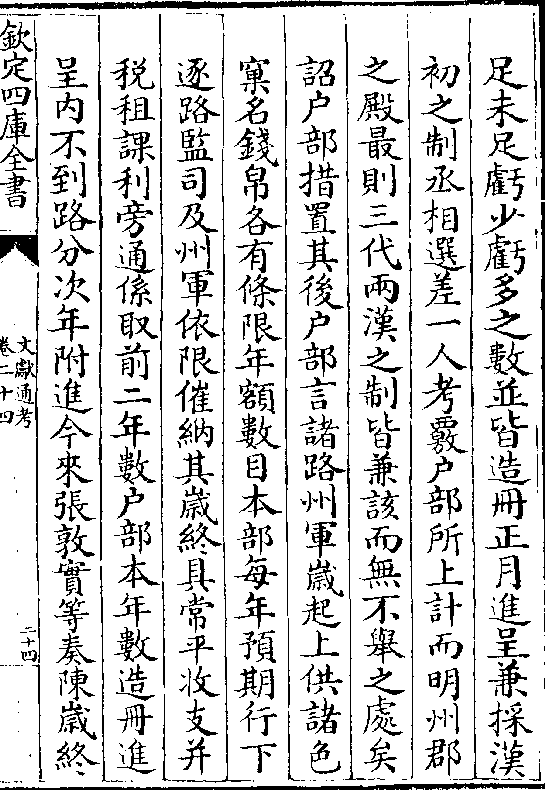 足未足虧少虧多之數並皆造冊正月進呈兼採漢
初之制丞相選差一人考覈户部所上計而明州郡
之殿最則三代兩漢之制皆兼該而無不舉之處矣
詔户部措置其後户部言諸路州軍歲起上供諸色
窠名錢帛各有條限年額數目本部每年預期行下
逐路監司及州軍依限催納其歲終具常平收支并
税租課利旁通係取前二年數户部本年數造冊進
呈内不到路分次年附進今來張敦實等奏陳歲終
欽定四庫全書
文獻通考
卷二十四
二十四